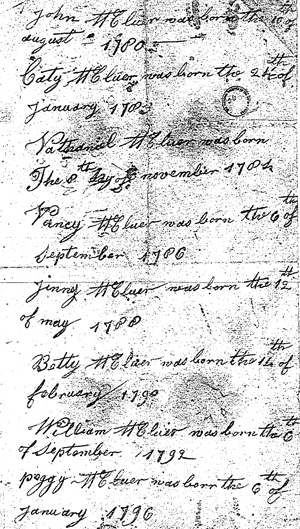 John McLuer was born the 10th of
august 1780
Caty McLuer was born the 24th of
January 1783
Nathaniel McLuer was born
The 8th day of november 1784
Nancy McLuer was born the 6th of
September 1786
Jinny McLuer was born the 12th
of may 1788
Betty McLuer was born the 14th of
february 1790
William McLuer was born the 6th
of September 1792
peggy McLuer was born the 6th of
January 1796